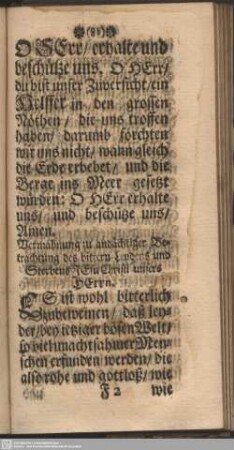 O HErr/ erhalte und
beschütze uns. O HErr/
du bist unser Zuversicht/ ein
Hülffer in den grossen
Nöthen/ die uns troffen
haben/ darumb förchten
wir uns nicht/ wann gleich
die Erde erbebet/ und die
Berge ins Meer gesetzt
würden: O HErr erhalte
uns/ und beschüße uns/
Amen.
Vermahnung zu andächtiger Be-
trachtung des bittern Leydens und
Sterbens JEsu Christi unsers
HErrn.
ES ist wohl bitterlich
zubeweinen/ daß ley-
der/ bey ietziger bösen Welt/
so viel unachtsahmer Men-
schen erfunden werden/ die
also rohe und gottloß/ wie
F 2 wie